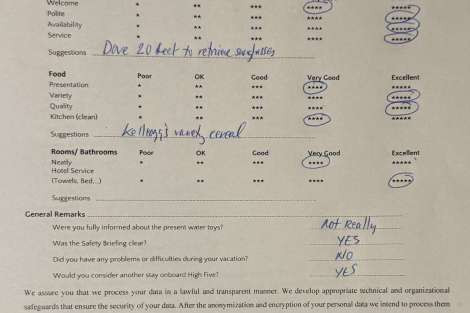 Welcome * ** *** **** *****
Polite * ** *** **** *****
Availability * ** *** **** *****
Service * ** *** **** *****
Suggestions Dove 20 feet to retrieve sunglasses
Food Poor OK Good Very Good Excellent
Presentation * ** *** **** *****
Variety * ** *** **** *****
Quality * ** *** **** *****
Kitchen (clean) * ** *** **** *****
Suggestions Kellogg's variety cereal
Rooms/ Bathrooms Poor OK Good Very Good Excellent
Neatly * ** *** **** *****
Hotel Service
(Towels, Bed...) * ** *** **** *****
Suggestions
General Remarks
Were you fully informed about the present water toys? Not Really
Was the Safety Briefing clear? YES
Did you have any problems or difficulties during your vacation? NO
Would you consider another stay onboard High Five? YES
We assure you that we process your data in a lawful and transparent manner. We develop appropriate technical and organizational
safeguards that ensure the security of your data. After the anonymization and encryption of your personal data we intend to process them